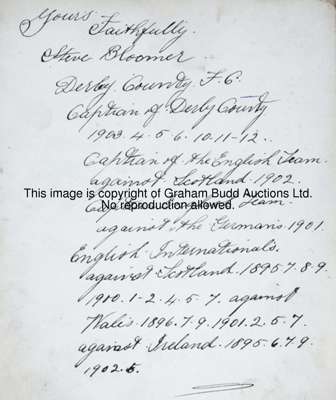 Yours
Faithfully.
Steve Bloomer
Derby County F.C.
Captian of Derby County
1903.4.5.6.10.11-12.
Captian of the English Team.
against Scotland 1902.
This image is copyright of Graham Budd Auctions Ltd.
No reproduction allowed.
Team
against the Germans 1901.
English Internationals.
against Scotland. 1895 7.8.9.
1900.1-2.4.5-7. against
Wales 1896.7.9.1901.2.5.7.
against Ireland. 1895.6.7.9.
1902.5.